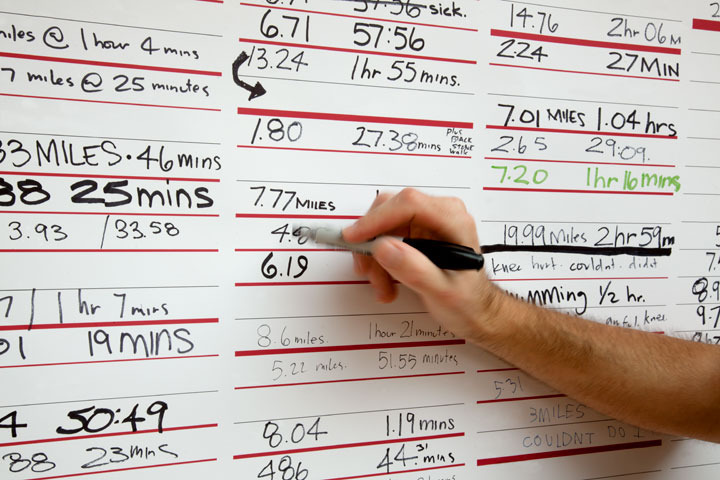 sick.
6.71 57:56
13.24 1hr 55 mins.
1.80 27.38 mins plus back stone walk
7.77 MILES
6.19
8.6 miles 1hour 21 minutes
5.22 miles. 51.55 minutes
8.04 1.19 mins
486 44.31 mins
miles @ 1 hour 4 mins
7 miles @ 25 minutes
33 MILES. 46 mins
88 25 mins
3.93 /33.58
7 | 1 hr 7 mins
01 19 MINS
4 50:49
88 23 mins
14.76 2hr 06 M
2.24 27 MIN
7.01 MILES 1.04 hrs
2.65 29:09.
7.20 1hr 16 mins
19.99 Miles 2hr 59m
knee hurt. couldnt. didnt
mming 1/2 hr.
ful, knee
5.31
3 MILES
COULDNT DO I